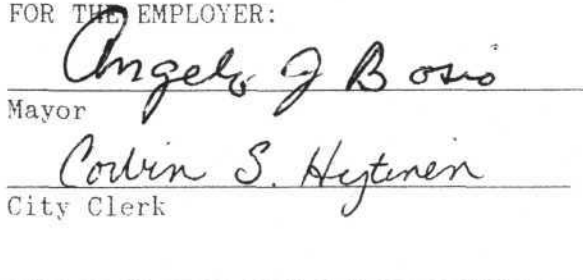 FOR THE EMPLOYER:
Angelo J Bosio
Mayor
Corwin S. Hytinen
City Clerk